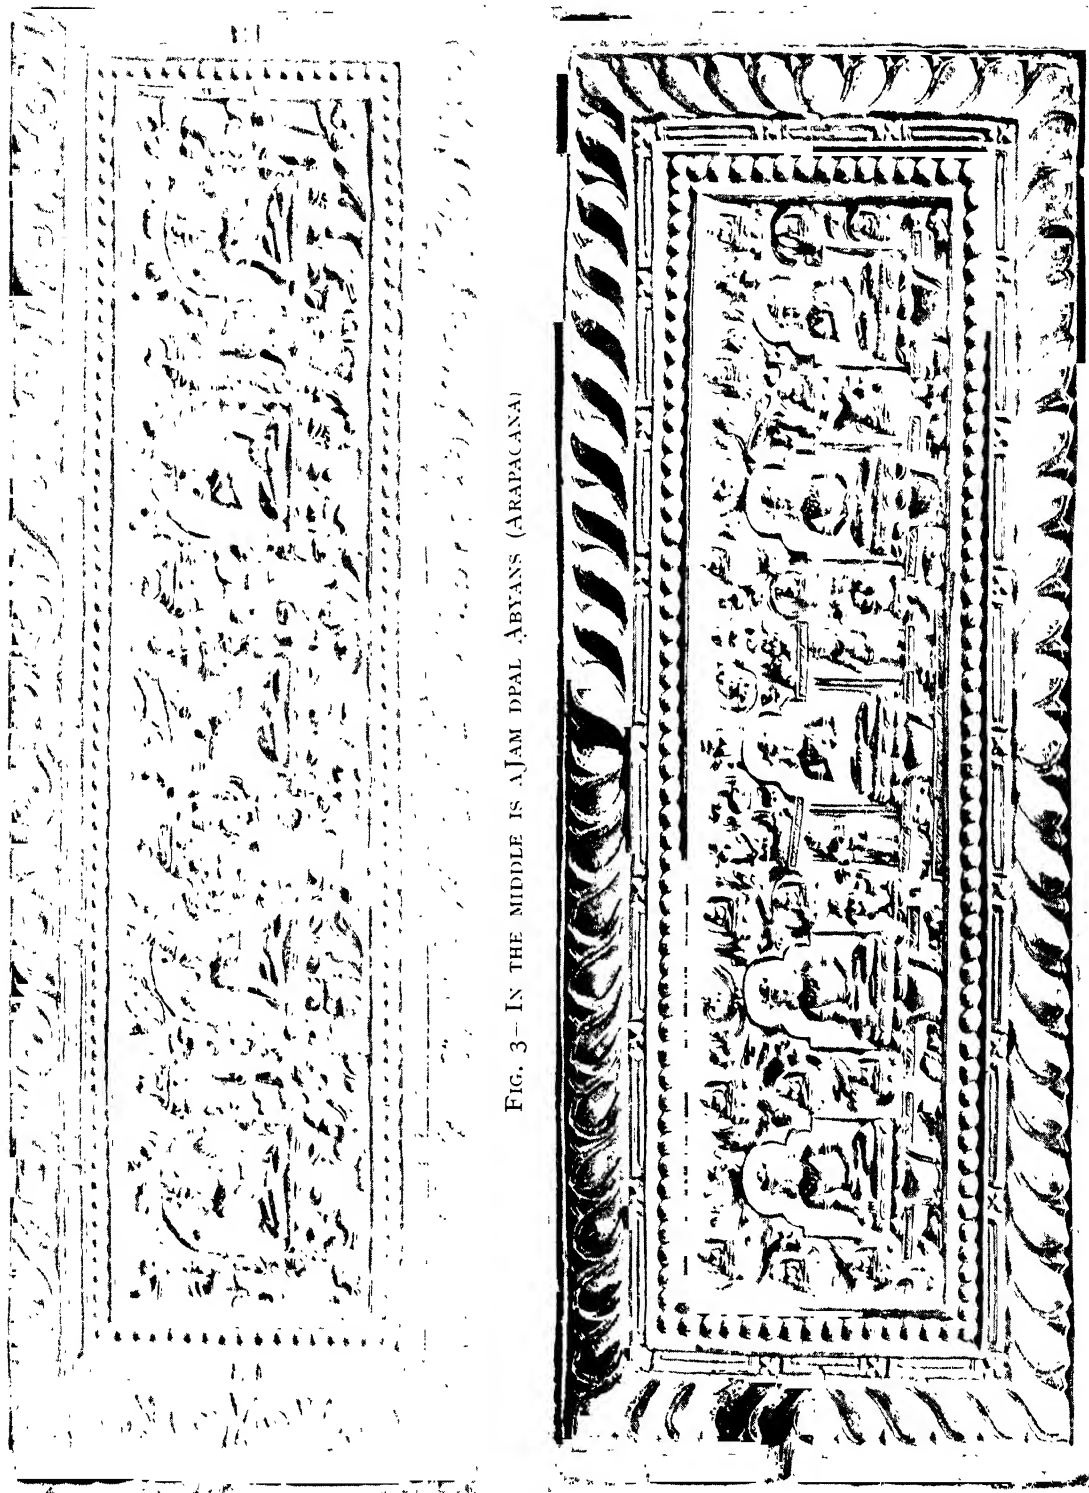 FIG. 3— IN THE MIDDLE IS AJAM DPAL ABYANS (ARAPACANA)